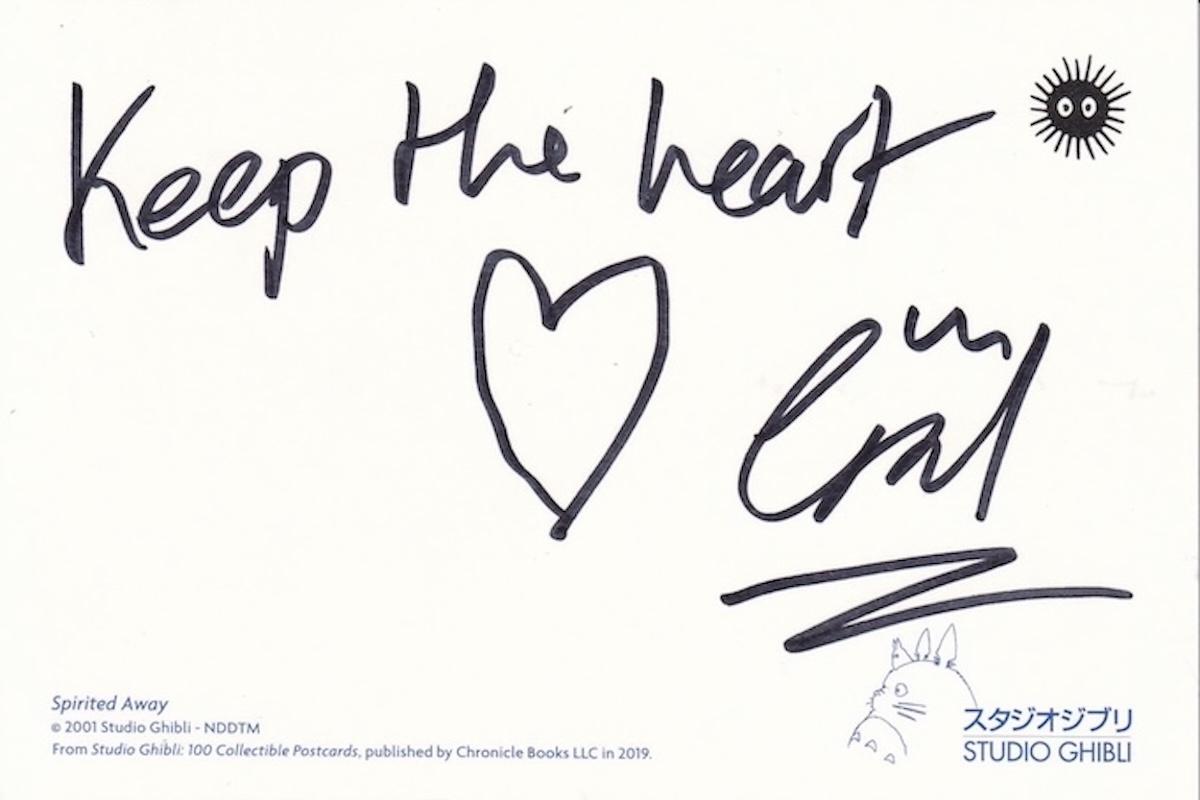 Keep the heart
Spirited Away
© 2001 Studio Ghibli - NDDTM
From Studio Ghibli: 100 Collectible Postcards, published by Chronicle Books LLC in 2019.
スタジオジブリ
STUDIO GHIBLI